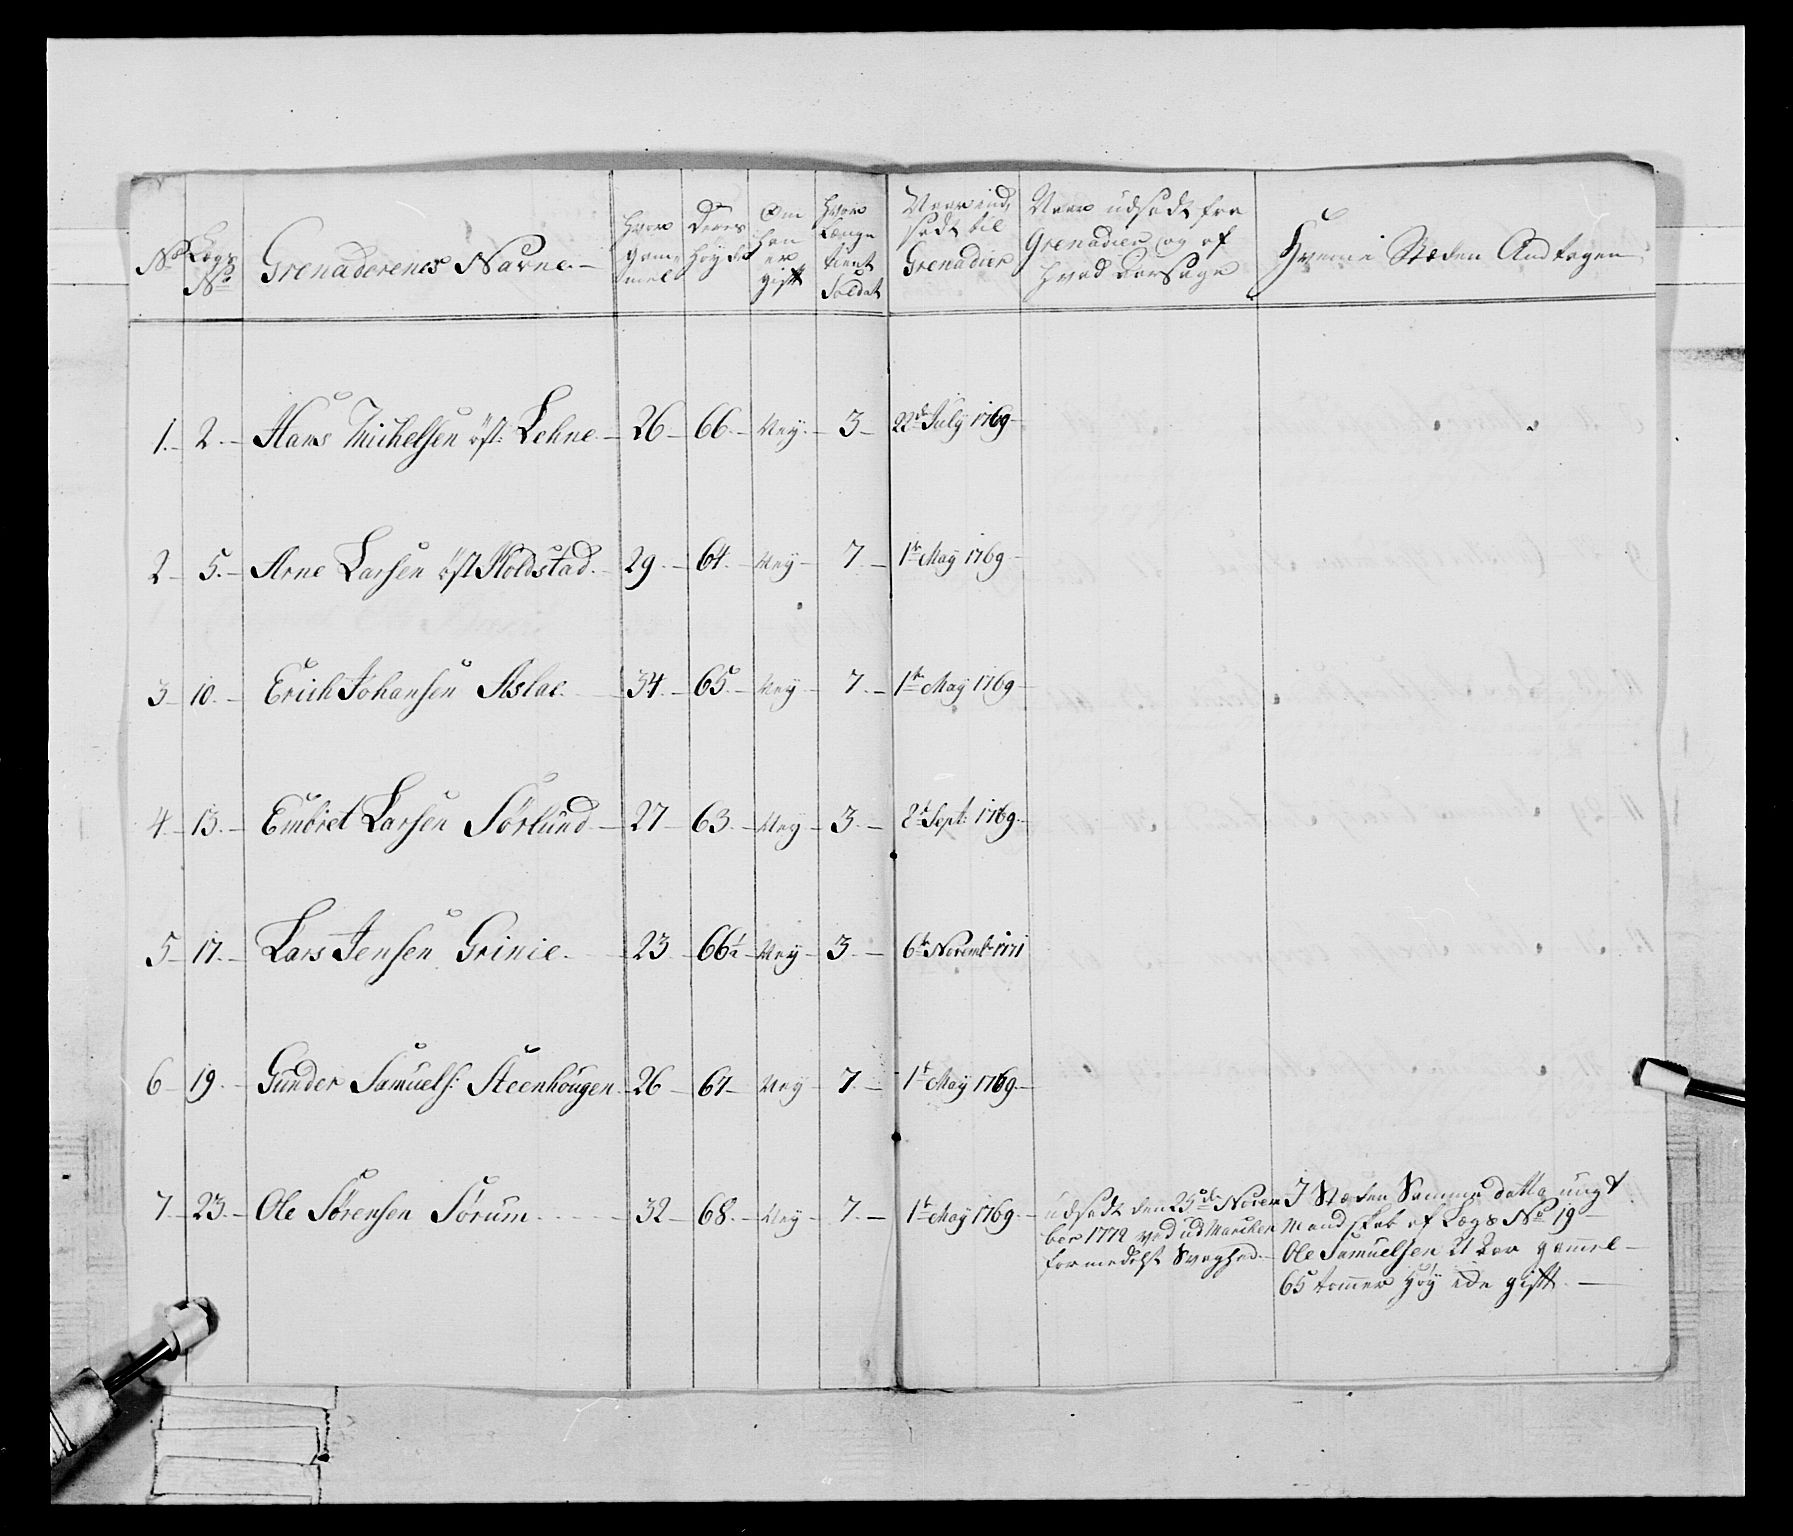 No Lægs No Grenaderenes Navne. Hvor gam mel Deres Høyde Om han er gift Hvor Længe tient Soldat Naar ind sadt til Grenadier Naar udsadt fra Grenadier og af hvad Aarsage Hvem i Stæden Andtagen
1. 2. Hans Michelsen öst: Lehne. 26 66. Ney. 3 22de July 1769
2 5. Arne Larsen öst Skoldstad. 29. 64. Ney 7. 1te May 1769
3 10. Erich Johansen Aslae. 34. 65. Ney 7. 1te May 1769
4 13. Embret Larsen Sørlund 27 63. Ney 3. 2t Sept: 1769.
5 17. Lars Jensen Grinie. 23 66½ Ney 3. 6te Novemb: 1771
6 19. Gunder Samuels: Steenhougen 26 67 Ney 7. 1t May 1769
7. 23. Ole Sørensen Sørum 32 68. Ney 7. 1t May 1769.
udsadt den 23de Novem
ber 1772 ved ud Marchen
formedelst Svaghed.
I Stæden Samme datto ungt
Mandskab af Lægs No 19
Ole Samuelsen 21 Aar gammel
65 tommer Høy icke gift.